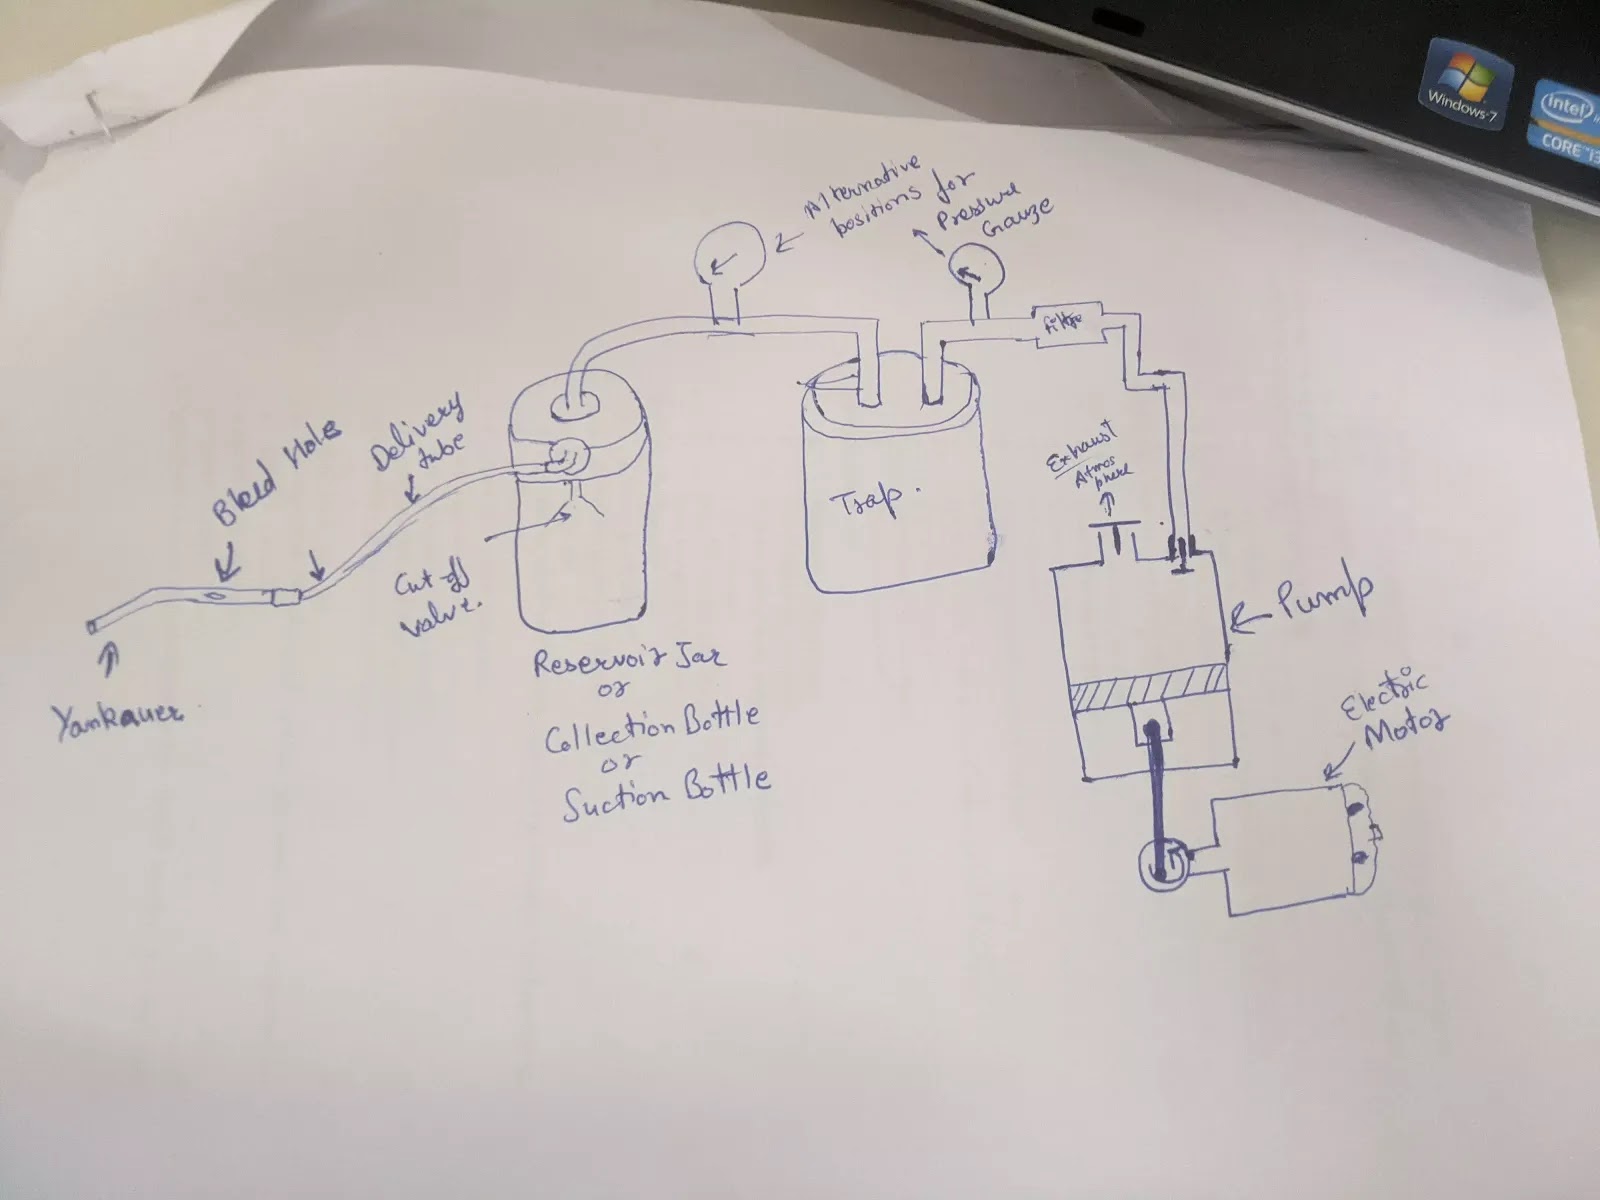 Windows 7
intel
CORE i3
Alternative
positions for
Pressure
Gauze
filter
Bleed Hole
Delivery
tube
Exhaust
Atmos
phere
Trap.
Cut-off
valve.
Pump
Yankauer
Reservoir Jar
or
Collection Bottle
or
Suction Bottle
Electric
Motor